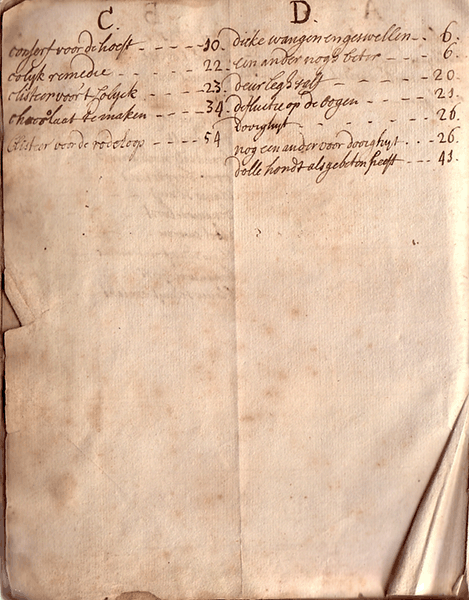 C.
consert voor de hoest - - - - - 10
colyk remedie - - - - - - 22
clisteer voor't colyck - - - - 23
chocolaat te maken - - - - 34
Clisteer voor de rodeloop - - - - 54
D.
dicke wangen en geswellen - - 6.
een ander nogh beter - - - 6
deurlegh salf - - - - 20
defluctie op de oogen - - - - 21.
doorghyt - - - - - - - 26
nog een ander voor doorghyt - - - 26.
dolle hondt als gebeten heeft - - - 41.